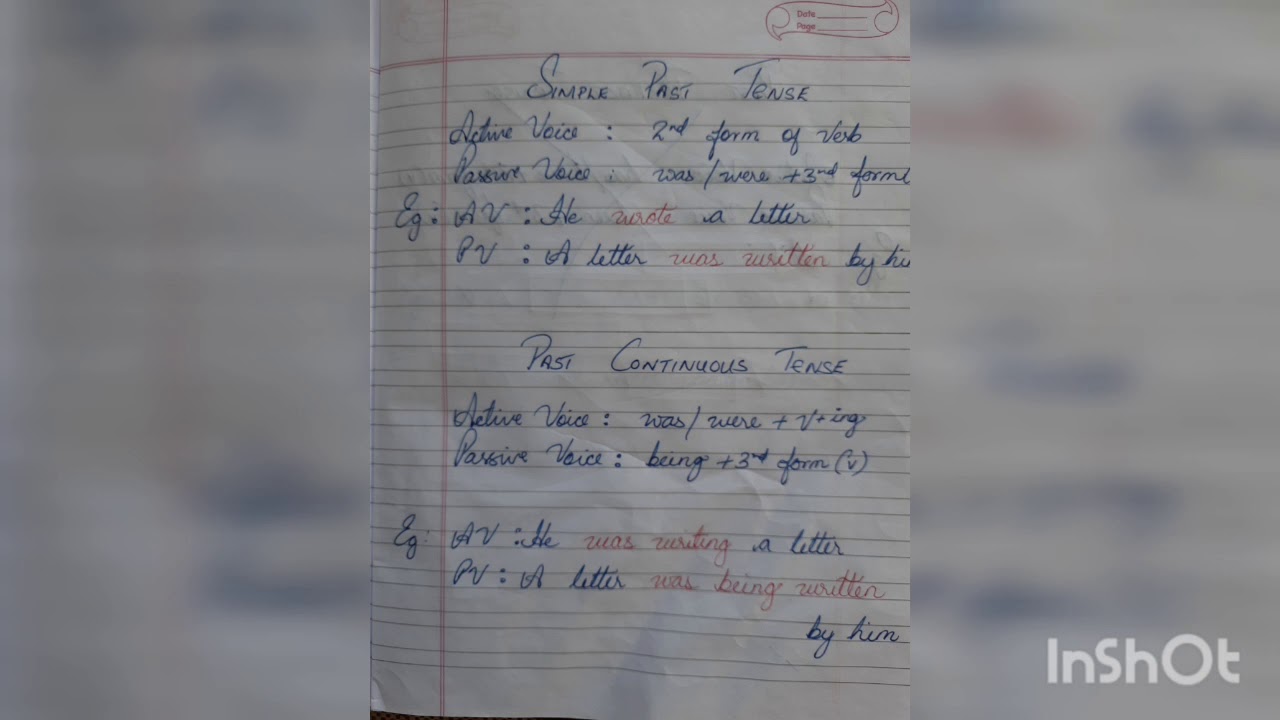 Date
Page
SIMPLE PAST TENSE
Active Voice : 2nd form of verb
Passive Voice : was / were +3nd form
Eg : AV : He wrote a letter
PV : A letter was written by hi
PAST CONTINUOUS TENSE
Active Voice : was / were + v+ing
Passive Voice : being +3nd form (v)
Eg : AV : He was writing a letter
PV : A letter was being written
by him
InShOt